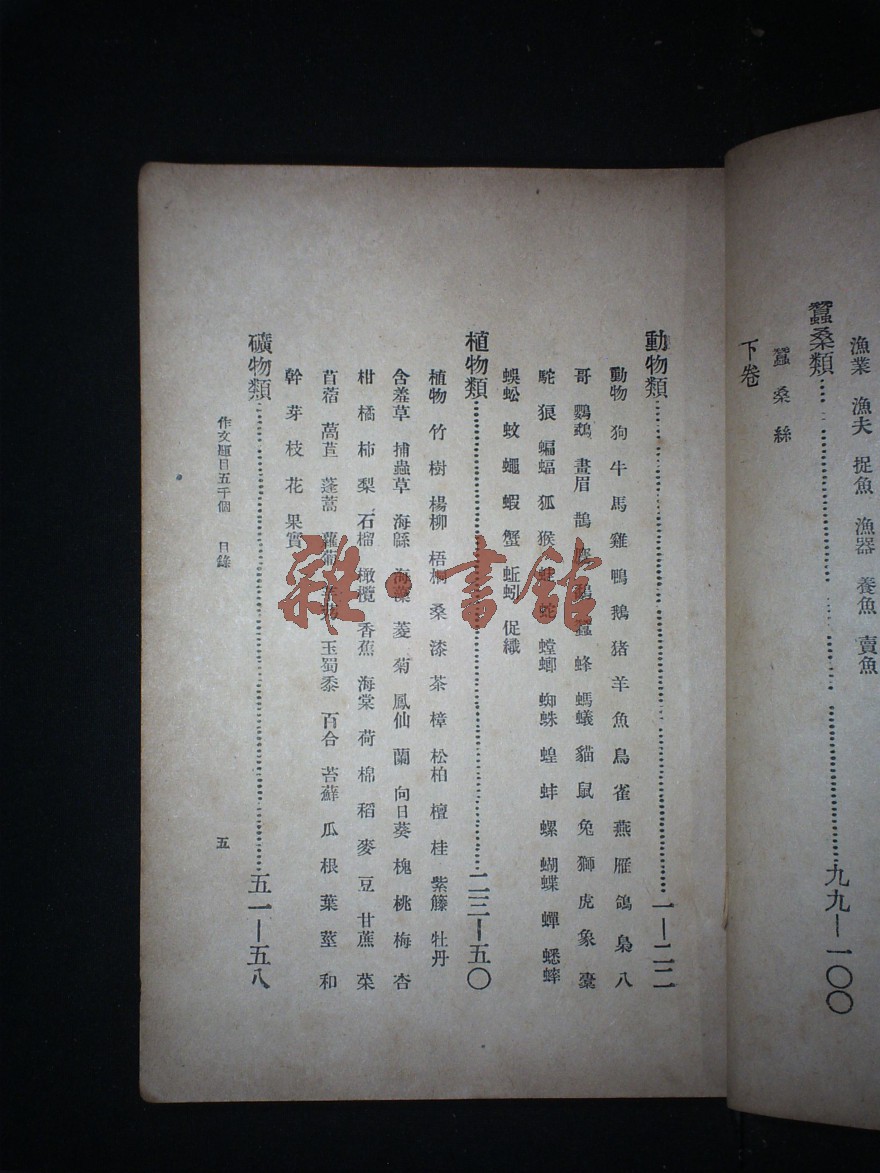 漁業 漁夫 捉魚 漁器 養魚 賣魚
蠶桑類 九九—一〇〇
蠶 桑 絲
下卷
動物類 一—二二
動物 狗 牛 馬 雞 鴨 鵝 猪 羊 魚 鳥 雀 燕 雁 鴿 梟 八
哥 鸚鵡 畫眉 鵲 蠶 蜂 螞蟻 貓 鼠 兔 獅 虎 象 橐
駝 狼 蝙蝠 狐 猴 蛙 蛇 螳螂 蜘蛛 蝗 蚌 螺 蝴蝶 蟬 蟋蟀
蜈蚣 蚊 蠅 蝦 蟹 蚯蚓 促織
植物類 二三—五〇
植物 竹 樹 楊柳 梧桐 桑 漆 茶 樟 松柏 檀 桂 紫籐 牡丹
含羞草 捕蟲草 海緜 海藻 菱 菊 鳳仙 蘭 向日葵 槐 桃 梅 杏
柑 橘 柿 梨 石榴 橄欖 香蕉 海棠 荷 棉 稻 麥 豆 甘蔗 菜
苜蓿 萵苣 蓬蒿 蘿蔔 玉蜀黍 百合 苔蘚 瓜 根 葉 莖 和
幹 芽 枝 花 果實
礦物類 五一—五八
作文題目五千個 目錄
五
雜·書館